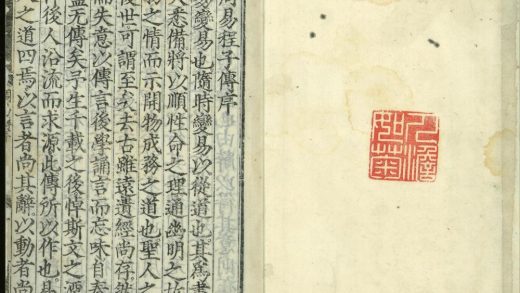 人澹
如菊
周易程子傳序
易變易也隨時變易以從道也其爲書
大悉備將以順性命之理通幽明之故
物之情而示開物成務之道也聖人之
後世可謂至矣去古雖遠遺經尚存然
儒失意以傳言後學誦言而忘味自秦
蓋无傳矣予生千載之後悼斯文之湮
後人沿流而求源此傳所以作也易
之道四焉以言者尚其辭以動者尚